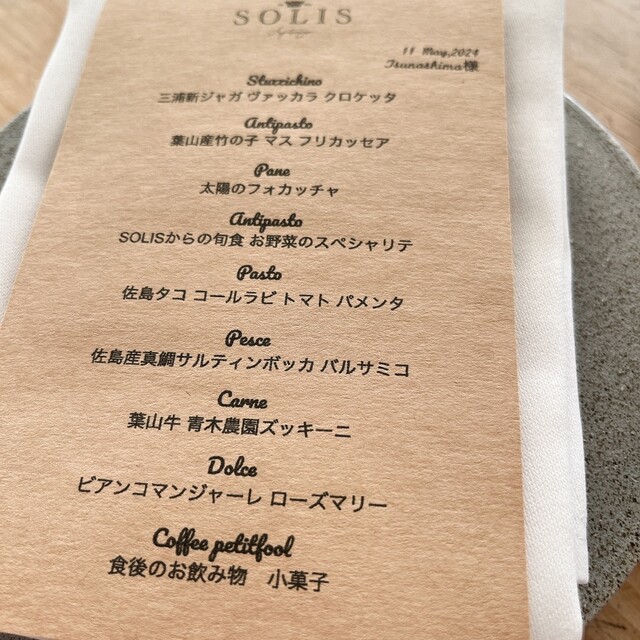 SOLIS
11 May,2024
Tsunashima様
Stuzzichino
三浦新ジャガ ヴァッカラ クロケッタ
Antipasto
葉山産竹の子 マス フリカッセア
Pane
太陽のフォカッチャ
Antipasto
SOLISからの旬食 お野菜のスペシャリテ
Pasto
佐島タコ コールラビ トマト パメンタ
Pesce
佐島産真鯛サルティンボッカ バルサミコ
Carne
葉山牛 青木農園ズッキーニ
Dolce
ビアンコマンジャーレ ローズマリー
Coffee petitfool
食後のお飲み物 小菓子